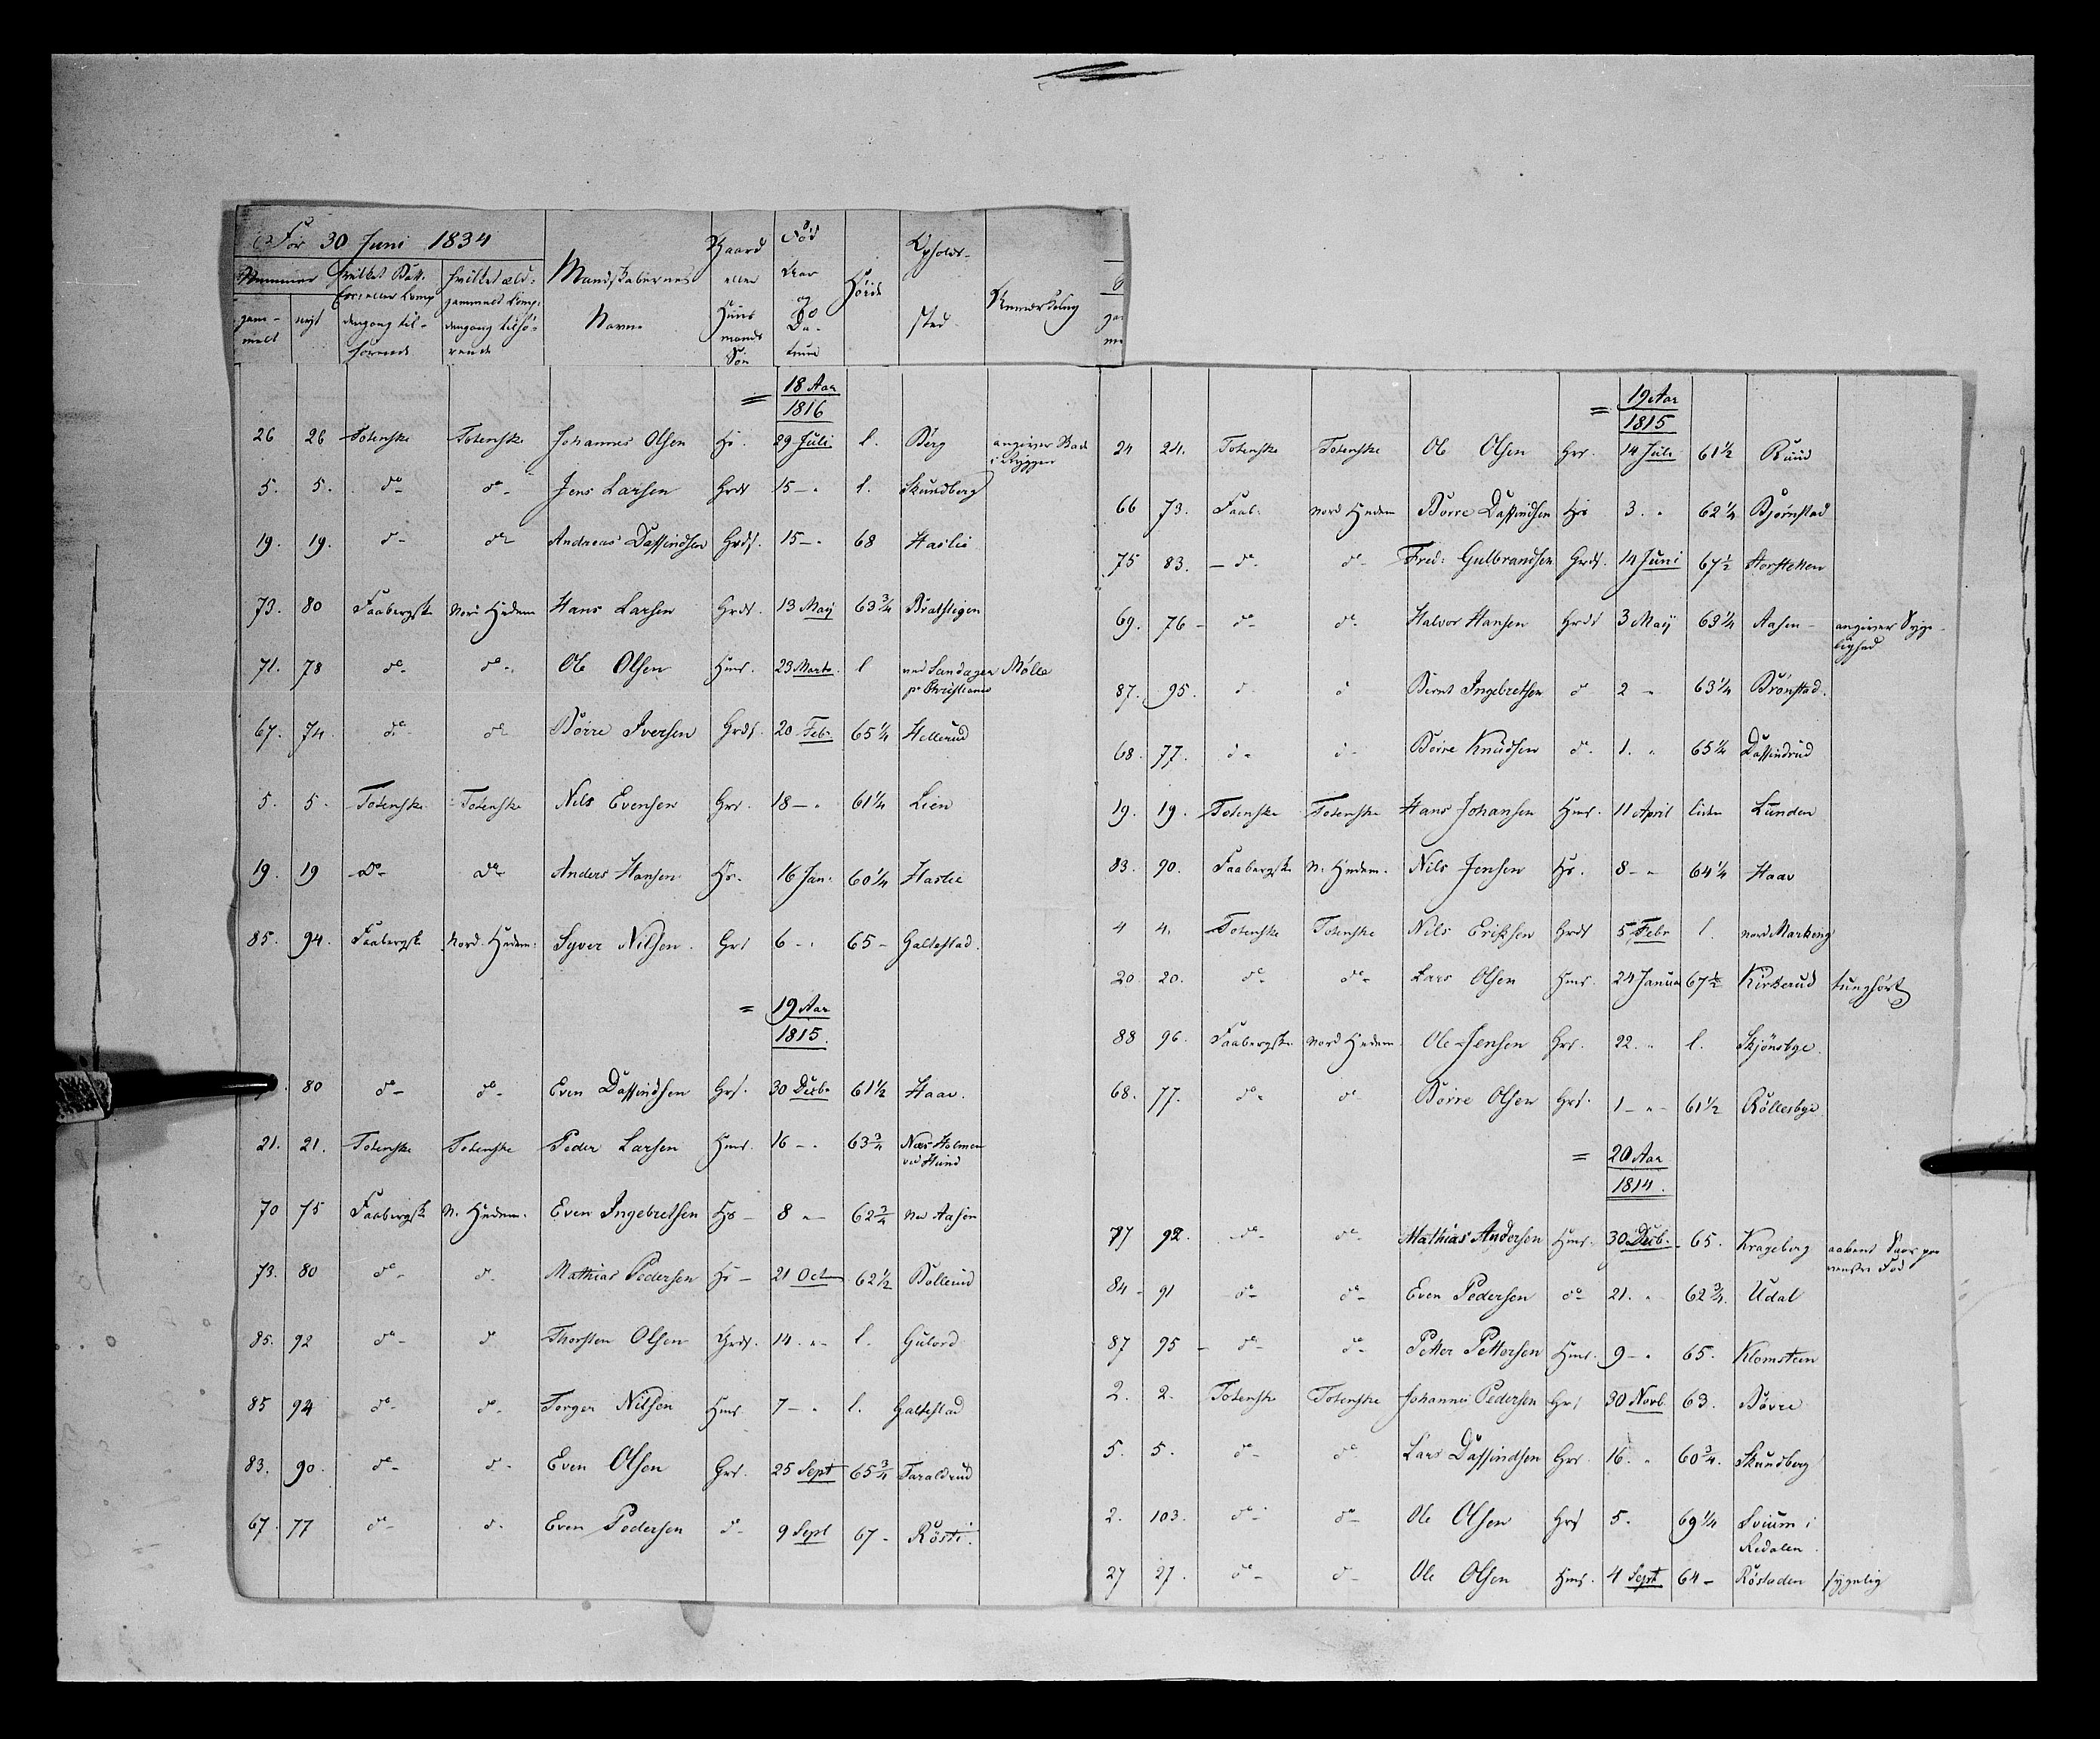 For 30 Juni 1834
Nummer
gammelt nyt
Mandskabernes Navne
Gaard eller Huusmands Søn
Fød Aar og Datum
Høide
Opholdssted
Anmærkning
= 18 Aar
1816
26 26 Totenske Totenske Johannes Olsen Hs. 29 Juli l. Berg angiver Brok i Ryggen
5. 5. do do Jens Larsen Grds 15 - " l. Skundberg
19. 19. do do Andreas Dassindsen Grds. 15 - " 68 Haslie
73. 80 Faabergske Nord Hedem Hans Larsen Grds. 13 Maij 63 3/4 Bratstigen
71. 78 do do Ole Olsen Hms. 23 Marts l ved Sandagen Mølle pr Christiania
67. 74. do do Börre Iversen Grds. 20 Febr. 65 1/4 Hellerud
5. 5. Totenske Totenske Nils Evensen Grs. 18 - " 61 1/4 Lien
19. 19 do do Anders Hansen Hs. 16 Jan. 60 1/4 Haslie
85. 94. Faabergsk Nord. Hedem: Syver Nilsen Grs 6 - " 65 - Galtestad.
= 19 Aar
1815.
80 do do Even Dassindsen Grs. 30 Decb. 61 1/2 Haav.
21. 21. Totenske Totenske Peder Larsen Hms. 16 - " 63 3/4 Næs Holmen ved Hund
70 75 Faabergsk N. Hedem. Even Ingebretsen Hs - 8 " - 62 3/4 Aasen
73. 80 do d. Mathias Pedersen Hs - 21 Oct 62 1/2 Bollerud
85. 92 do d Thorsten Olsen Grds. 14. " - l. Gulord
85 94 do d. Torger Nilsen Hms. 7 - " l. Galtestad
83. 90. do d. Even Olsen Grs. 25 Sept 65 3/4 Taraldrud
67. 77 do d. Even Pedersen d - 9 Sept 67 - Rösti.
= 19 Aar
1815
24 24. Totenske Totenske Ole Olsen Grs. 14 Juli 61 1/2 Ruud
66 73. Faab. Nord Hedem Börre Dassindsen Hs 3. " 62 1/4 Bjørnstad
75 83. - do do Fred: Gulbrandsen Grds. 14 Juni 67 1/2
69. 76 - do do Halvor Hansen Grds 3 Maij 63 1/4 Aasen - angiver Sygelighed
87. 95. d d Bernt Ingebretsen d 2 - 63 1/4 Brönstad.
68. 77. d d Börre Knudsen d. 1. " 65 1/4 Dassindrud
19. 19. Totenske Totenske Hans Johansen Hms. 11 April liden Lunden
83. 90. Faabergske N. Hedem. Nils Jensen Hs. 8 - " 64 1/4 Haav
4 4. Totenske Totenske Nils Eriksen Grds 5 Febr l. nord Markeng
20 20. do do Lars Olsen Hms. 24 Januar 67 1/2 Kirkerud tunghört
88 96. Faabergske Nord Hedem. Ole Jensen Grs. 22. " l. Skjönsbye.
68. 77. do do Börre Olsen Grs. 1 - " - 61 1/2 Röllesbye.
= 20 Aar
1814.
77 92. do do Mathias Andersen Hms. 30 Decb. 65. Krageberg aabent Saar paa venstre Fod
84 - 91 do do Even Pedersen do 21. " 62 3/4. Udal
87 95 - do do Petter Pettersen Hms. 9 - " 65. Klomsteen
2. 2. Totenske Totenske Johannes Pedersen Grs 30 Novb. 63. Bövre
5. 5. do do Lars Dassindsen Grs. 16. " 60 3/4. Skundberg
2. 103. do do Ole Olsen Grs 5. 69 1/4 Svium i Redalen.
27 27. do d Ole Olsen Hms. 4 Sept 64 - Röstaden sygelig